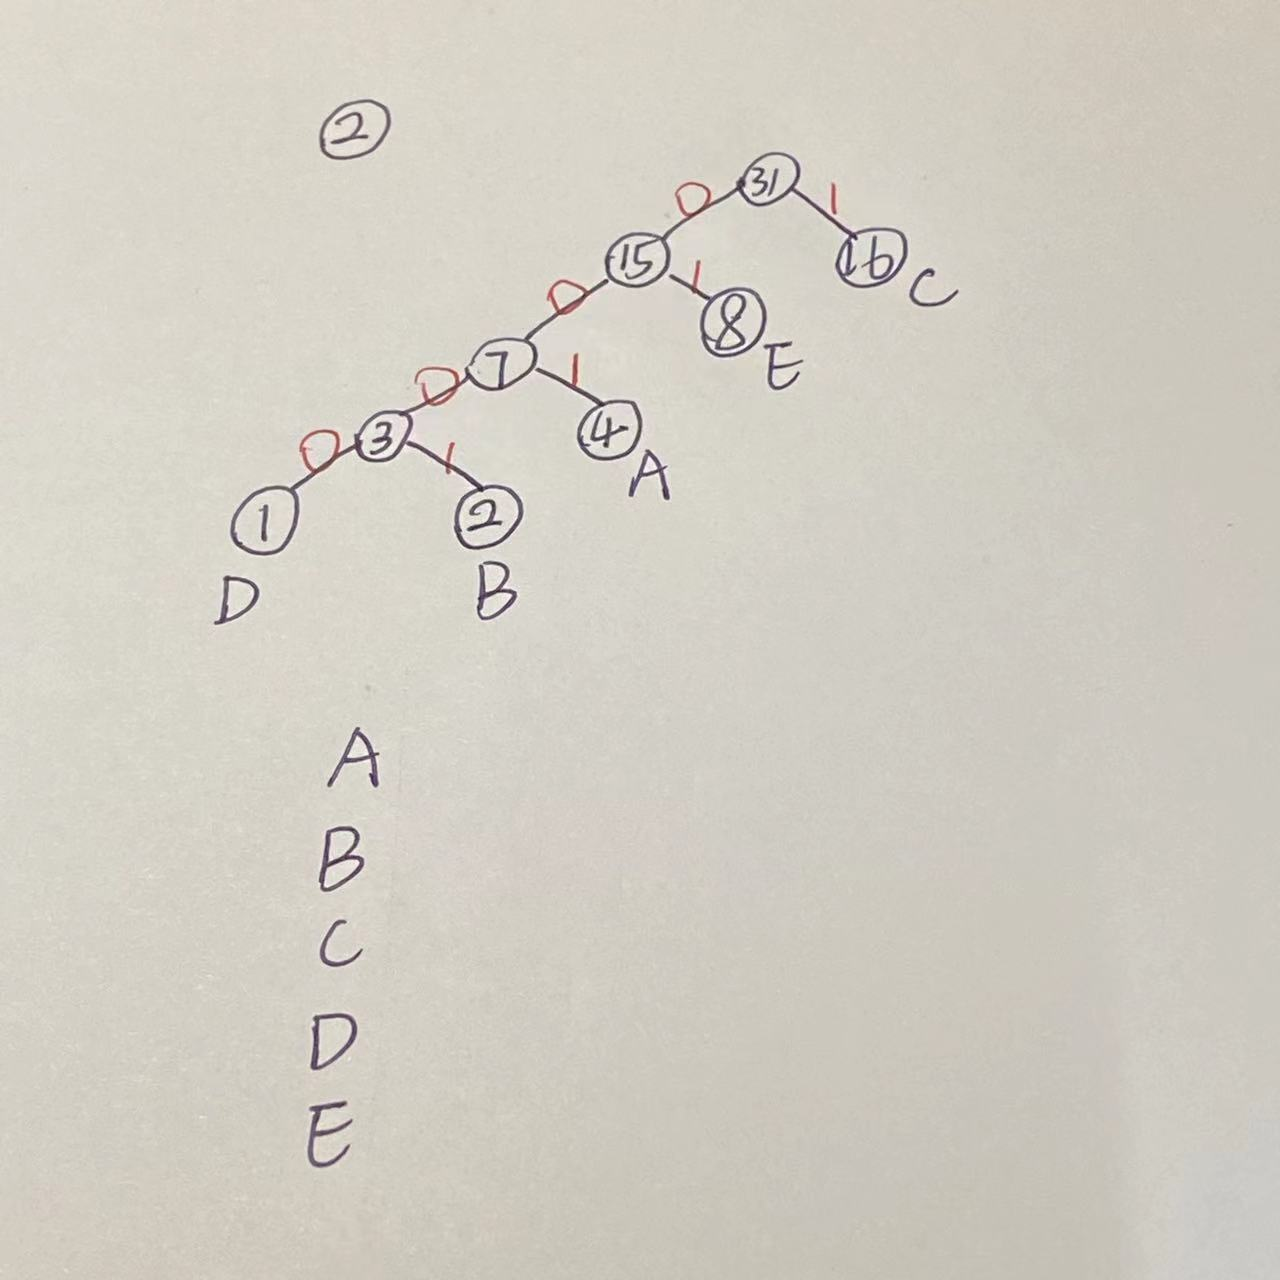 2
31
0 1
15 16 C
0 1
7 8 E
0 1
3 4 A
0 1
1 2
D B
A
B
C
D
E